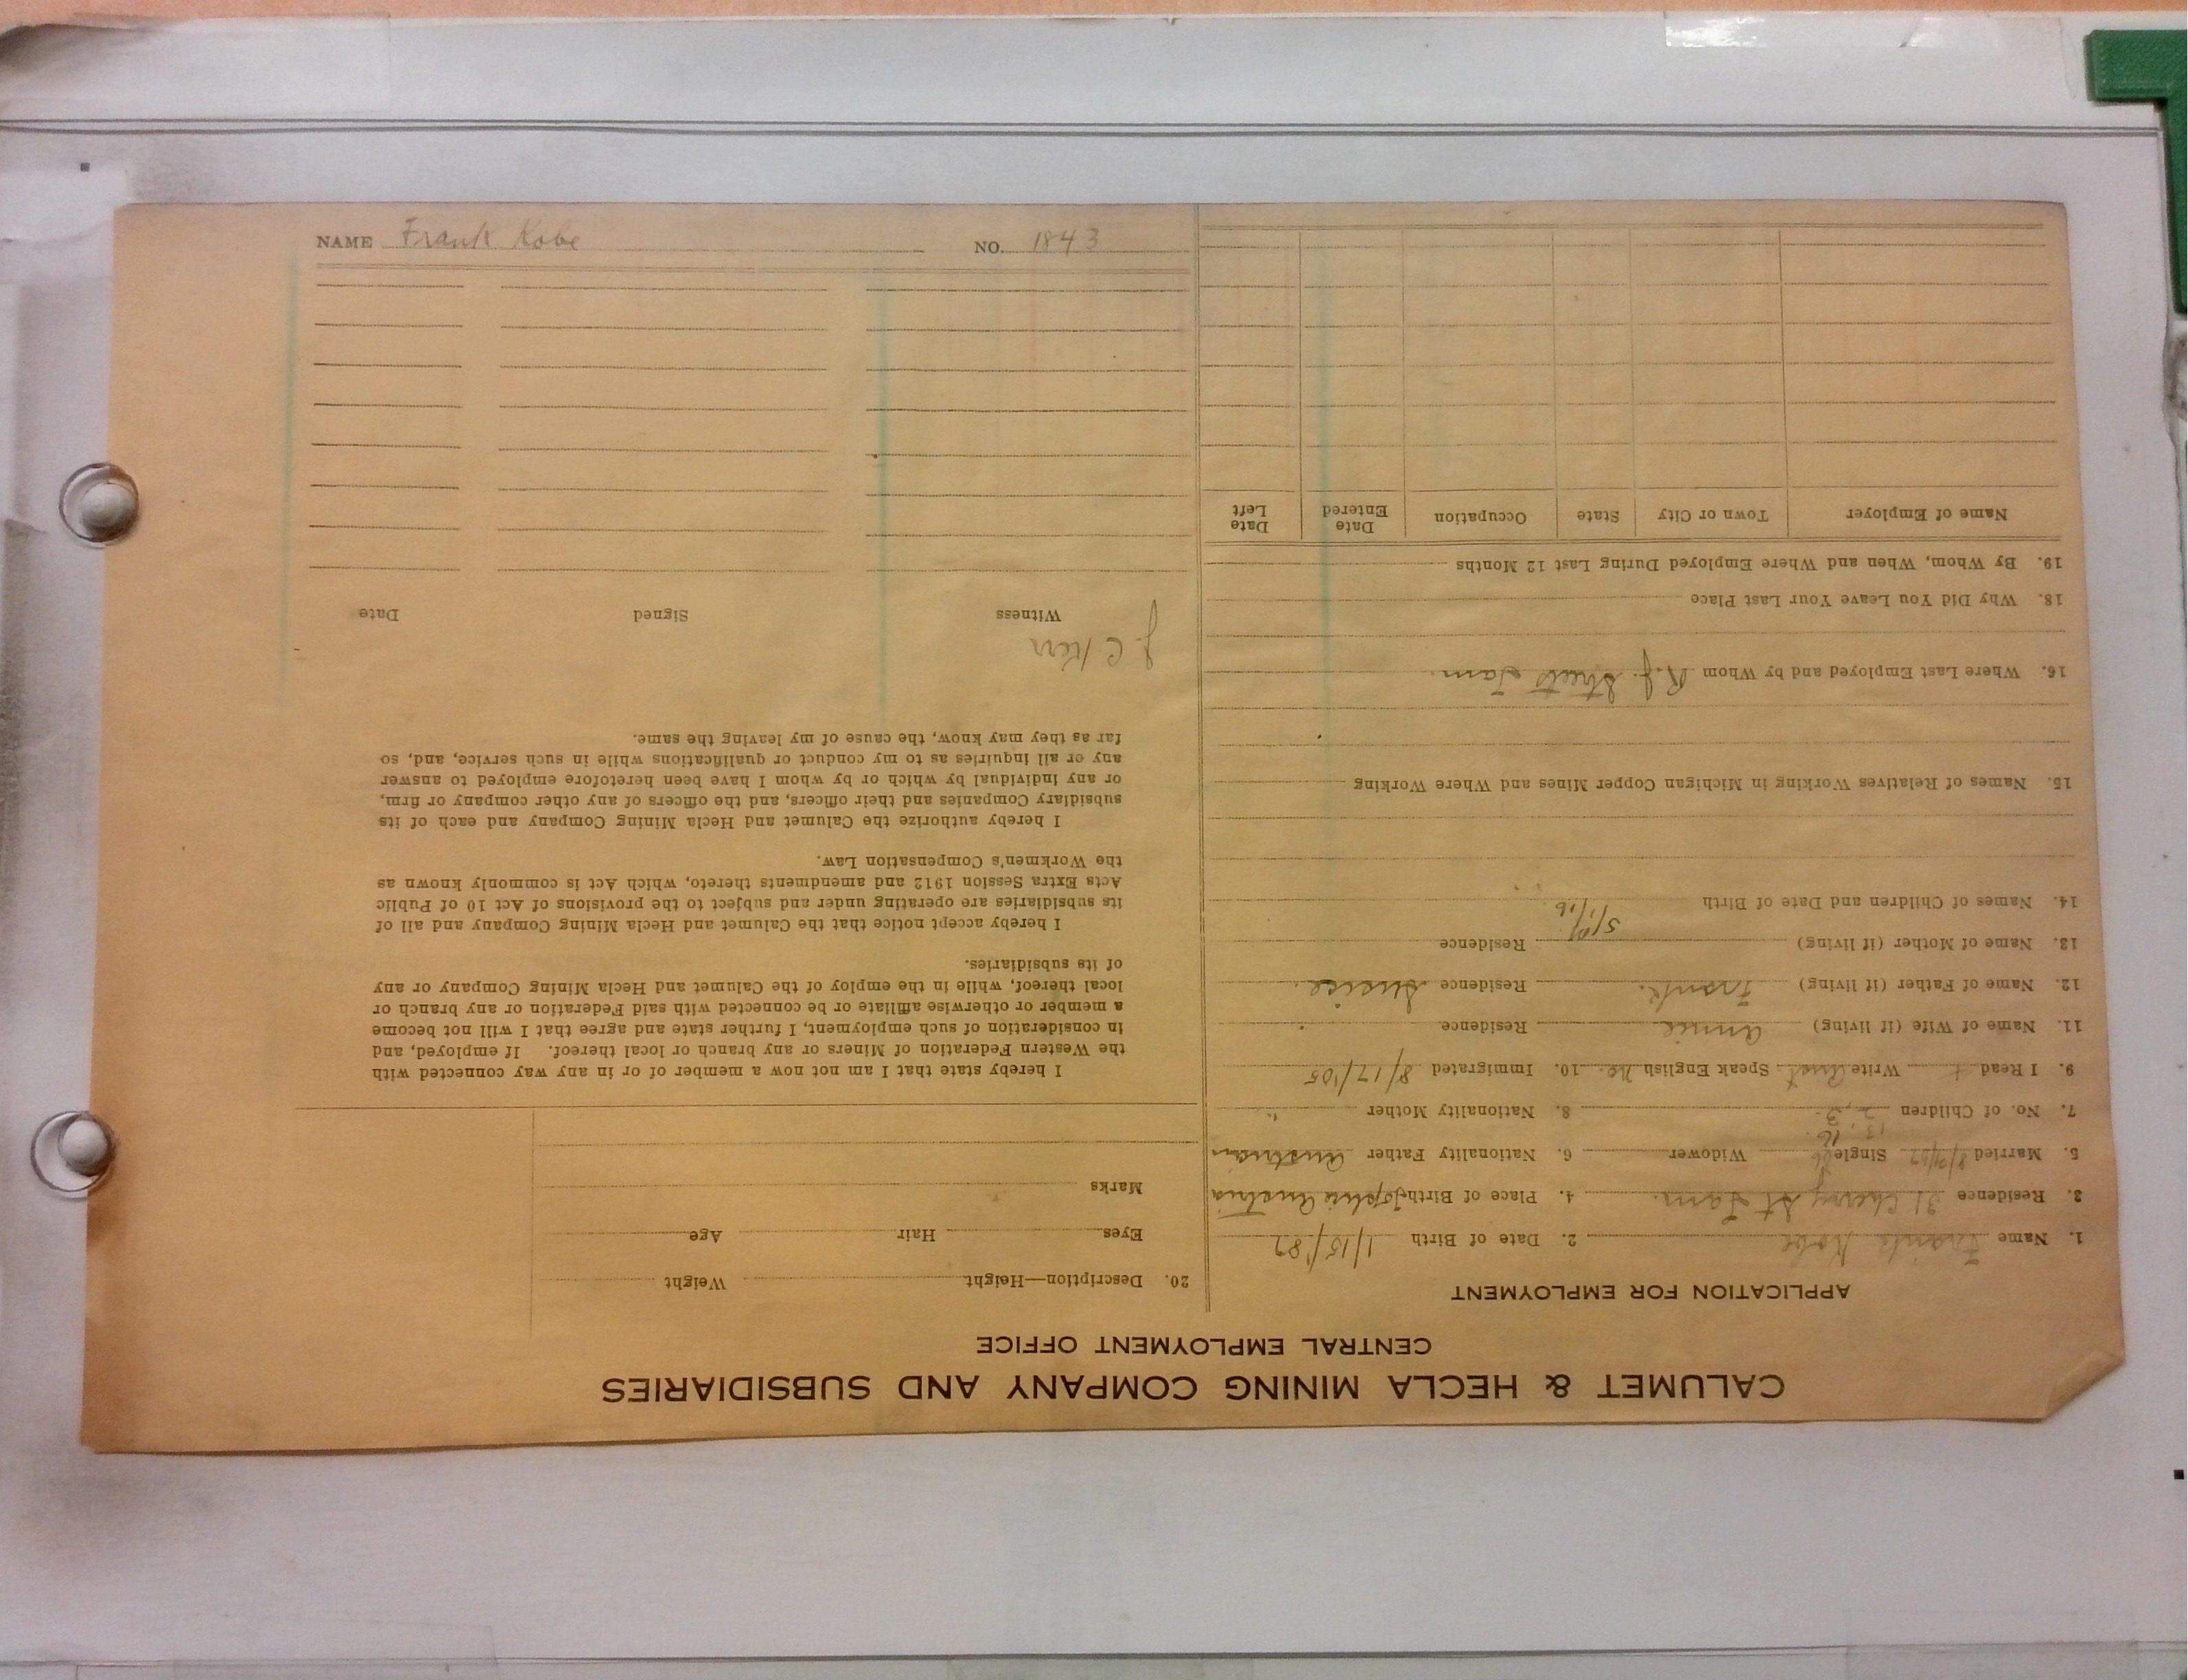 NAME Frank Kobe NO. 1843
CALUMET & HECLA MINING COMPANY AND SUBSIDIARIES
CENTRAL EMPLOYMENT OFFICE
APPLICATION FOR EMPLOYMENT
1. Name Frank Kobe 2. Date of Birth 1/15/'87
3. Residence 21 Cherry St Lam. 4. Place of Birth Austria
5. Married Single Widower 6. Nationality Father Austrian
7. No. of Children 8. Nationality Mother "
9. I Read + Write Aust. Speak English No. 10. Immigrated 8/17/'05
11. Name of Wife (if living) Annie Residence
12. Name of Father (if living) Frank. Residence
13. Name of Mother (if living) Residence
14. Names of Children and Date of Birth
15. Names of Relatives Working in Michigan Copper Mines and Where Working
16. Where Last Employed and by Whom
18. Why Did You Leave Your Last Place
19. By Whom, When and Where Employed During Last 12 Months
Name of Employer Town or City State Occupation Date Entered Date Left
20. Description—Height Weight
Eyes Hair Age
Marks
I hereby state that I am not now a member of or in any way connected with
the Western Federation of Miners or any branch or local thereof. If employed, and
in consideration of such employment, I further state and agree that I will not become
a member or otherwise affiliate or be connected with said Federation or any branch or
local thereof, while in the employ of the Calumet and Hecla Mining Company or any
of its subsidiaries.
I hereby accept notice that the Calumet and Hecla Mining Company and all of
its subsidiaries are operating under and subject to the provisions of Act 10 of Public
Acts Extra Session 1912 and amendments thereto, which Act is commonly known as
the Workmen's Compensation Law.
I hereby authorize the Calumet and Hecla Mining Company and each of its
subsidiary Companies and their officers, and the officers of any other company or firm,
or any individual by which or by whom I have been heretofore employed to answer
any or all inquiries as to my conduct or qualifications while in such service, and, so
far as they may know, the cause of my leaving the same.
J. C Kerr
Witness Signed Date